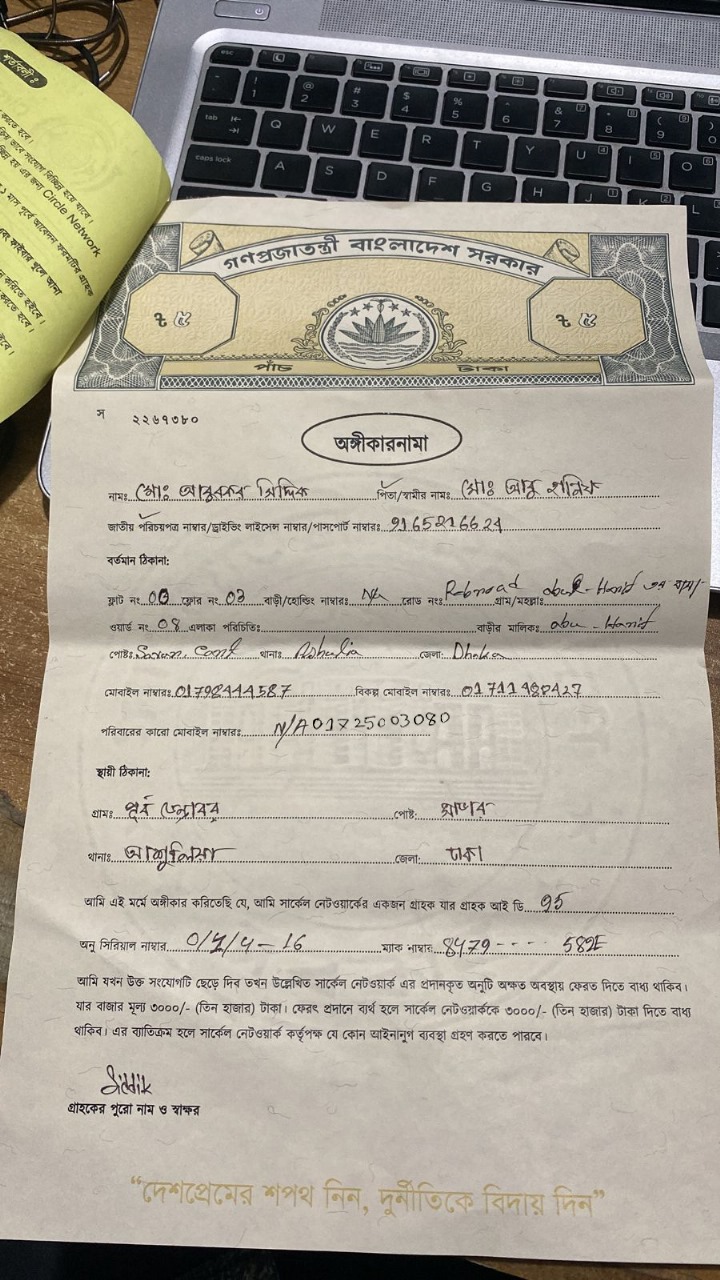 শর্তাবলীঃ
করতে হবে।
Circle Network
করিতে হইবে।
গণপ্রজাতন্ত্রী বাংলাদেশ সরকার
৳ ৫
৳ ৫
পাঁচ টাকা
স ২২৬৭৩৮০
অঙ্গীকারনামা
নামঃ মোঃ আবুবকর সিদ্দিক পিতা/স্বামীর নামঃ মোঃ আবু হানিফ
জাতীয় পরিচয়পত্র নাম্বার/ড্রাইভিং লাইসেন্স নাম্বার/পাসপোর্ট নাম্বারঃ 9165216624
বর্তমান ঠিকানা:
ফ্লাট নং 00 ফ্লোর নং 03 বাড়ী/হোল্ডিং নাম্বারঃ N/A রোড নংঃ গ্রাম/মহল্লাঃ
ওয়ার্ড নং 08 এলাকা পরিচিতিঃ বাড়ীর মালিকঃ abu-Hanif
পোষ্টঃ Savar. Cant থানাঃ Ashulia জেলা: Dhaka
মোবাইল নাম্বারঃ 01798444587 বিকল্প মোবাইল নাম্বারঃ
পরিবারের কারো মোবাইল নাম্বারঃ N/A 01725003080
স্থায়ী ঠিকানা:
গ্রামঃ পূর্ব ডেন্ডাবর পোষ্ট: সাভার
থানাঃ আশুলিয়া জেলা: ঢাকা
আমি এই মর্মে অঙ্গীকার করিতেছি যে, আমি সার্কেল নেটওয়ার্কের একজন গ্রাহক যার গ্রাহক আই ডি 95
অনু সিরিয়াল নাম্বার 0/1/4-16 ম্যাক নাম্বার 8479---- 582E
আমি যখন উক্ত সংযোগটি ছেড়ে দিব তখন উল্লেখিত সার্কেল নেটওয়ার্ক এর প্রদানকৃত অনুটি অক্ষত অবস্থায় ফেরত দিতে বাধ্য থাকিব।
যার বাজার মূল্য ৩০০০/- (তিন হাজার) টাকা। ফেরৎ প্রদানে ব্যর্থ হলে সার্কেল নেটওয়ার্ককে ৩০০০/- (তিন হাজার) টাকা দিতে বাধ্য
থাকিব। এর ব্যাতিক্রম হলে সার্কেল নেটওয়ার্ক কর্তৃপক্ষ যে কোন আইনানুগ ব্যবস্থা গ্রহণ করতে পারবে।
Siddik
গ্রাহকের পুরো নাম ও স্বাক্ষর
“দেশপ্রেমের শপথ নিন, দুর্নীতিকে বিদায় দিন”